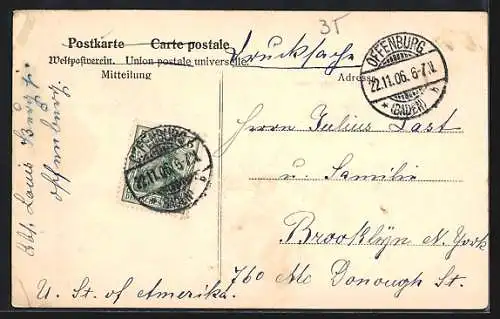 35
Postkarte Carte postale
Weltpostverein. Union postale universelle
Mitteilung
Drucksache
Adresse
OFFENBURG
22.11.06. 6-7.N.
* (BADEN) b
OFFENBURG
22.11.06. 6-7.N.
* (BADEN) b
Abs. Louis
Offenburg.
Herrn Julius Last
u. Familie
Brooklyn N. York
760 Mc Donough St.
U. St. of Amerika.